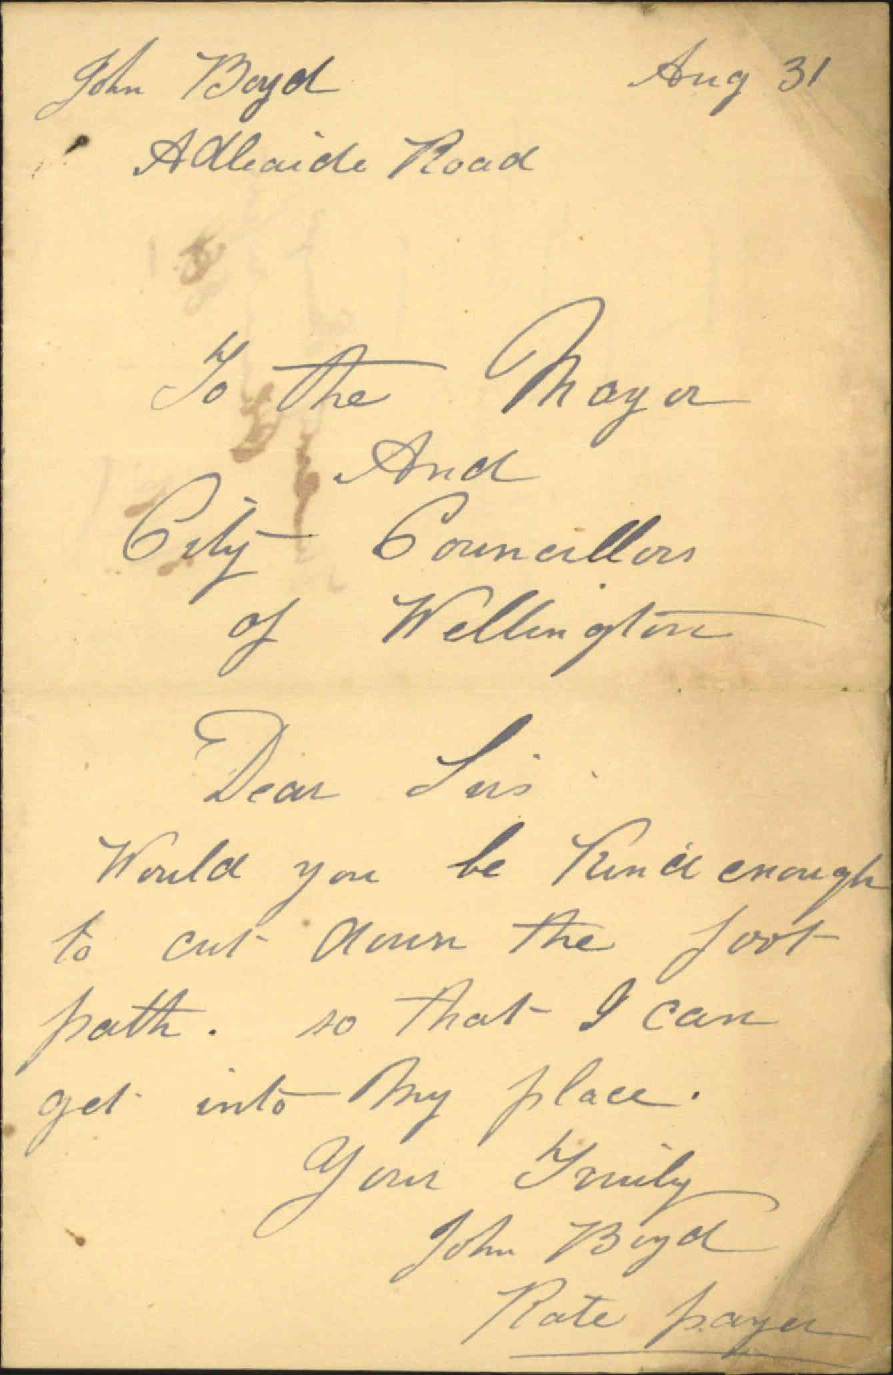 John Boyd Aug 31
Adleaide Road
To the Mayor
And
City Councillors
of Wellington
Dear Sirs
Would you be Kind enough
to cut down the foot
path. so that I can
get into My place.
Your Truily
John Boyd
Rate payer